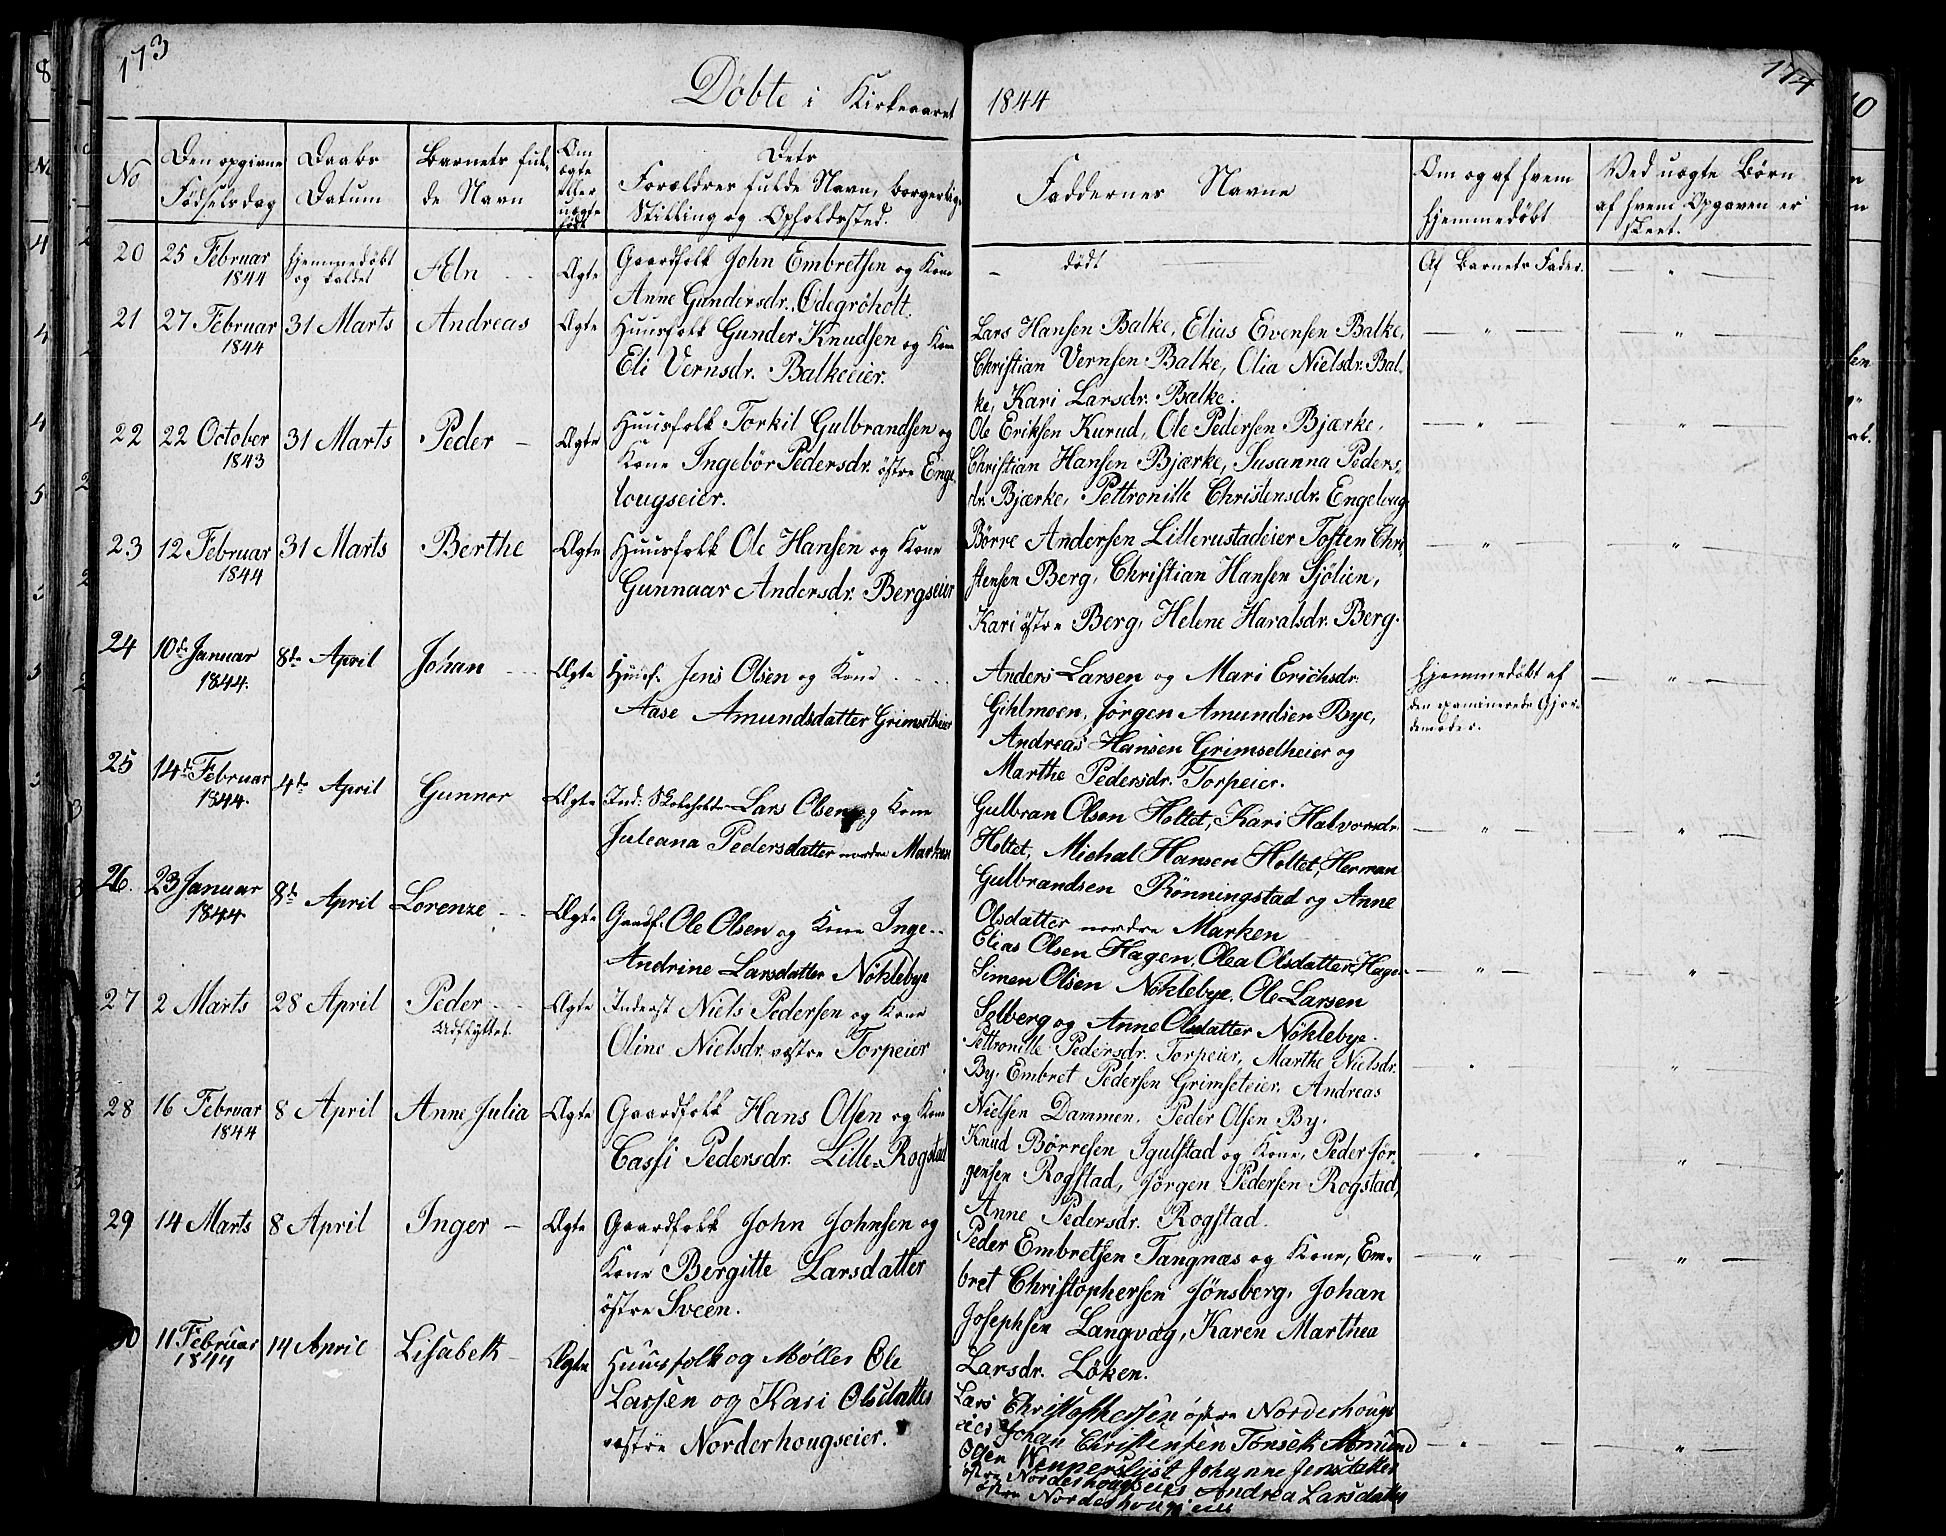 173
174
Døbte i Kirkeaaret
1844
No
Den opgivne
Fødselsdag
Daabs
Datum
Barnets ful-
de Navn
Om
ægte
eller
uægte
født
Dets
Forældres fulde Navn, borgerlige
Stilling og Opholdssted.
Faddernes Navne
Om og af hvem
hjemmedøbt
Ved uægte Børn
af hvem Opgaven er
skeet.
20 25 Februar 1844
hjemmedøbt
og kaldet
Aln
Ægte
Gaardfolk John Embretsen og Kone
Anne Gundersdr. Ødegröholt.
- dödt
Af Barnets Fader.
21 27 Februar 1844
31 Marts
Andreas
Ægte
Huusfolk Gunder Knudsen og Kone
Eli Vernsdr. Balkeeier.
Lars Hansen Balke, Elias Evensen Balke,
Christian Vernsen Balke, Olia Nielsdr. Bal-
ke, Kari Larsdr. Balke.
22 22 October 1843
31 Marts
Peder
Ægte
Huusfolk Torkil Gulbrandsen og
Kone Ingebör Pedersdr. östre Enge-
lougseier.
Ole Eriksen Kurud, Ole Pedersen Bjærke,
Christian Hansen Bjærke, Susanna Peders-
dr. Bjærke, Pettronille Christensdr. Engeloug
23 12 Februar 1844
31 Marts
Berthe
Ægte
Huusfolk Ole Hansen og Kone
Gunnaar Andersdr. Bergseier
Börre Andersen Lillerustadeier Tosten Chri-
stensen Berg, Christian Hansen Sjölien,
Kari östre Berg, Helene Haralsdr. Berg.
24 10de Januar 1844.
8de April
Johan
Ægte
Huusf. Jens Olsen og Kone
Aase Amundsdatter Grimsetheier
Anders Larsen og Mari Erichsdr.
Gihlmoen, Jørgen Amundsen Bye,
Andreas Hansen Grimselheier og
Marthe Pedersdr. Torpeier.
Hjemmedøbt af
den examinerede Gjor-
demoder.
25 14de Februar 1844.
4de April
Gunnor
Ægte
Ind: Skoleholder Lars Olsen og Kone
Juleana Pedersdatter nordre Marken
Gulbran Olsen Holtet, Kari Halvorsdr.
Holtet, Michal Hansen Holtet, Herman
Gulbrandsen Rönningstad og Anne
Olsdatter nordre Marken
26. 23 Januar 1844
8de April
Lorenze
Ægte
Gaardf. Ole Olsen og Kone Inge-
Andrine Larsdatter Nöklebye
Elias Olsen Hagen, Olea Olsdatter Hage-
Simen Olsen Nöklebye, Ole Larsen
Solberg og Anne Olsdatter Nöklebye.
27 2 Marts
28 April
Peder
Udflyttet.
Ægte
Inderst Niels Pedersen og Kone
Oline Nielsdr. vestre Torpeier
Pettronille Pedersdr. Torpeier, Marthe Nielsdr.
By, Embret Pedersen Grimseteier, Andreas
Nielsen Dammen, Peder Olsen By.
28 16 Februar 1844
8 April
Anne Julia
Ægte
Gaardfolk Hans Olsen og Kone
Cassi Pedersdr. Lille Rogstad
Knud Börresen Igulstad og Kone, Peder Jör-
gensen Rogstad, Jörgen Pedersen Rogstad,
Anne Pedersdr. Rogstad.
29 14 Marts
8 April
Inger
Ægte
Gaardfolk John Johnsen og
Kone Bergitte Larsdatter
östre Sveen.
Peder Embretsen Tangnæs og Kone, Em-
bret Christophersen Jönsberg, Johan
Josephsen Langvæg, Karen Marthea
Larsdr. Löken.
30 11 Februar 1844
14 April
Lisabeth
Ægte
Huusfolk og Møller Ole
Larsen og Kari Olsdatter
vestre Norderhougseier.
Lars Christophersen östre Norderhougs
eier Johan Christensen Tönseth Amund
Olsen Wenperslyst Johanne Jensdatter
östre Norderhougseier Andrea Larsdatter
östre Norderhougseier